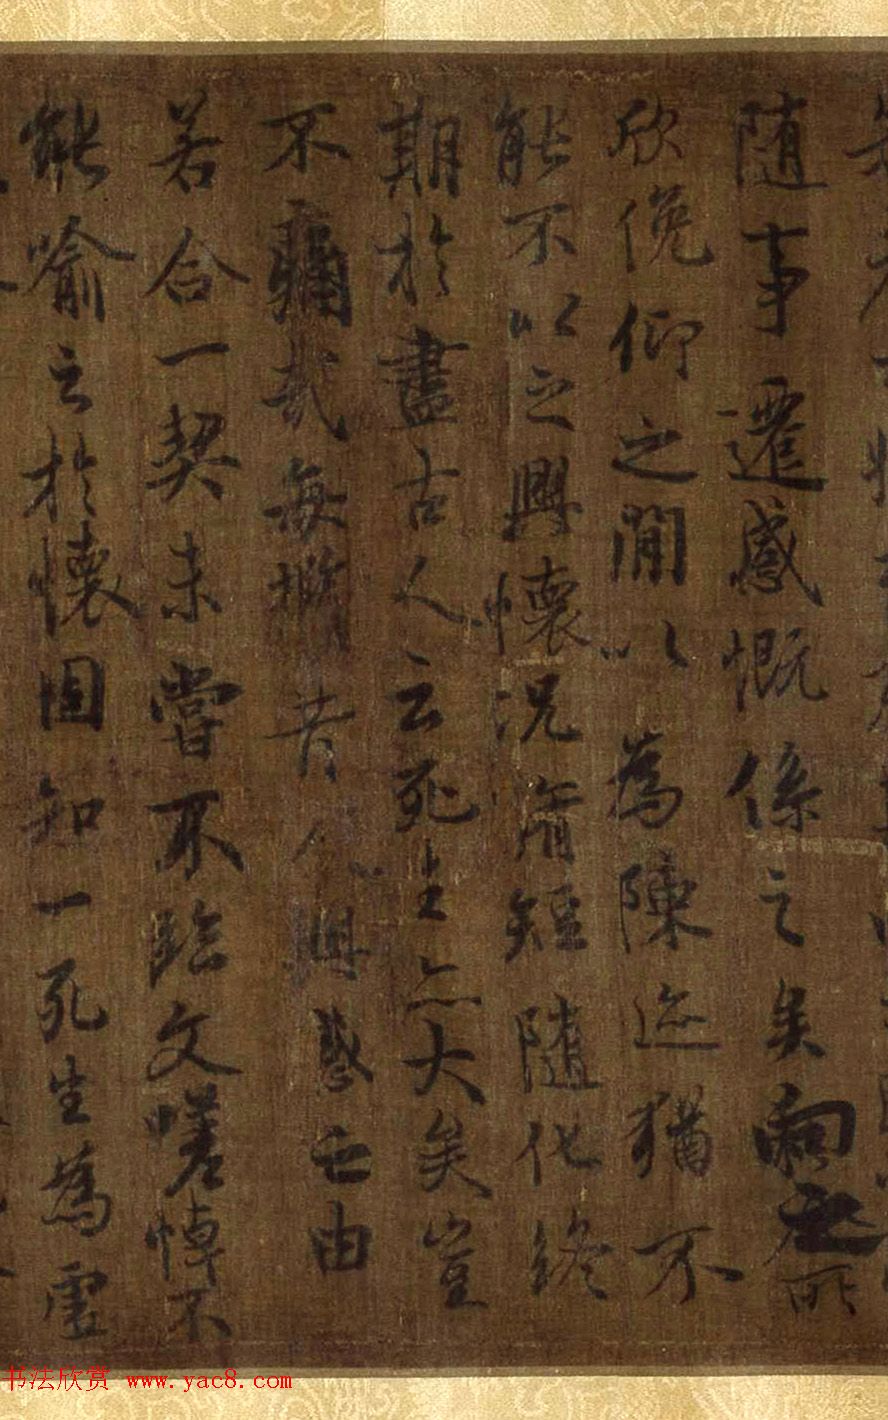 随事遷感慨係之矣向之所
欣俛仰之閒以為陳迹猶不
能不以之興懷況脩短随化終
期於盡古人云死生亦大矣豈
不痛哉每攬昔人興感之由
若合一契未嘗不臨文嗟悼不
能喻之於懷固知一死生為虛
书法欣赏 www.yac8.com